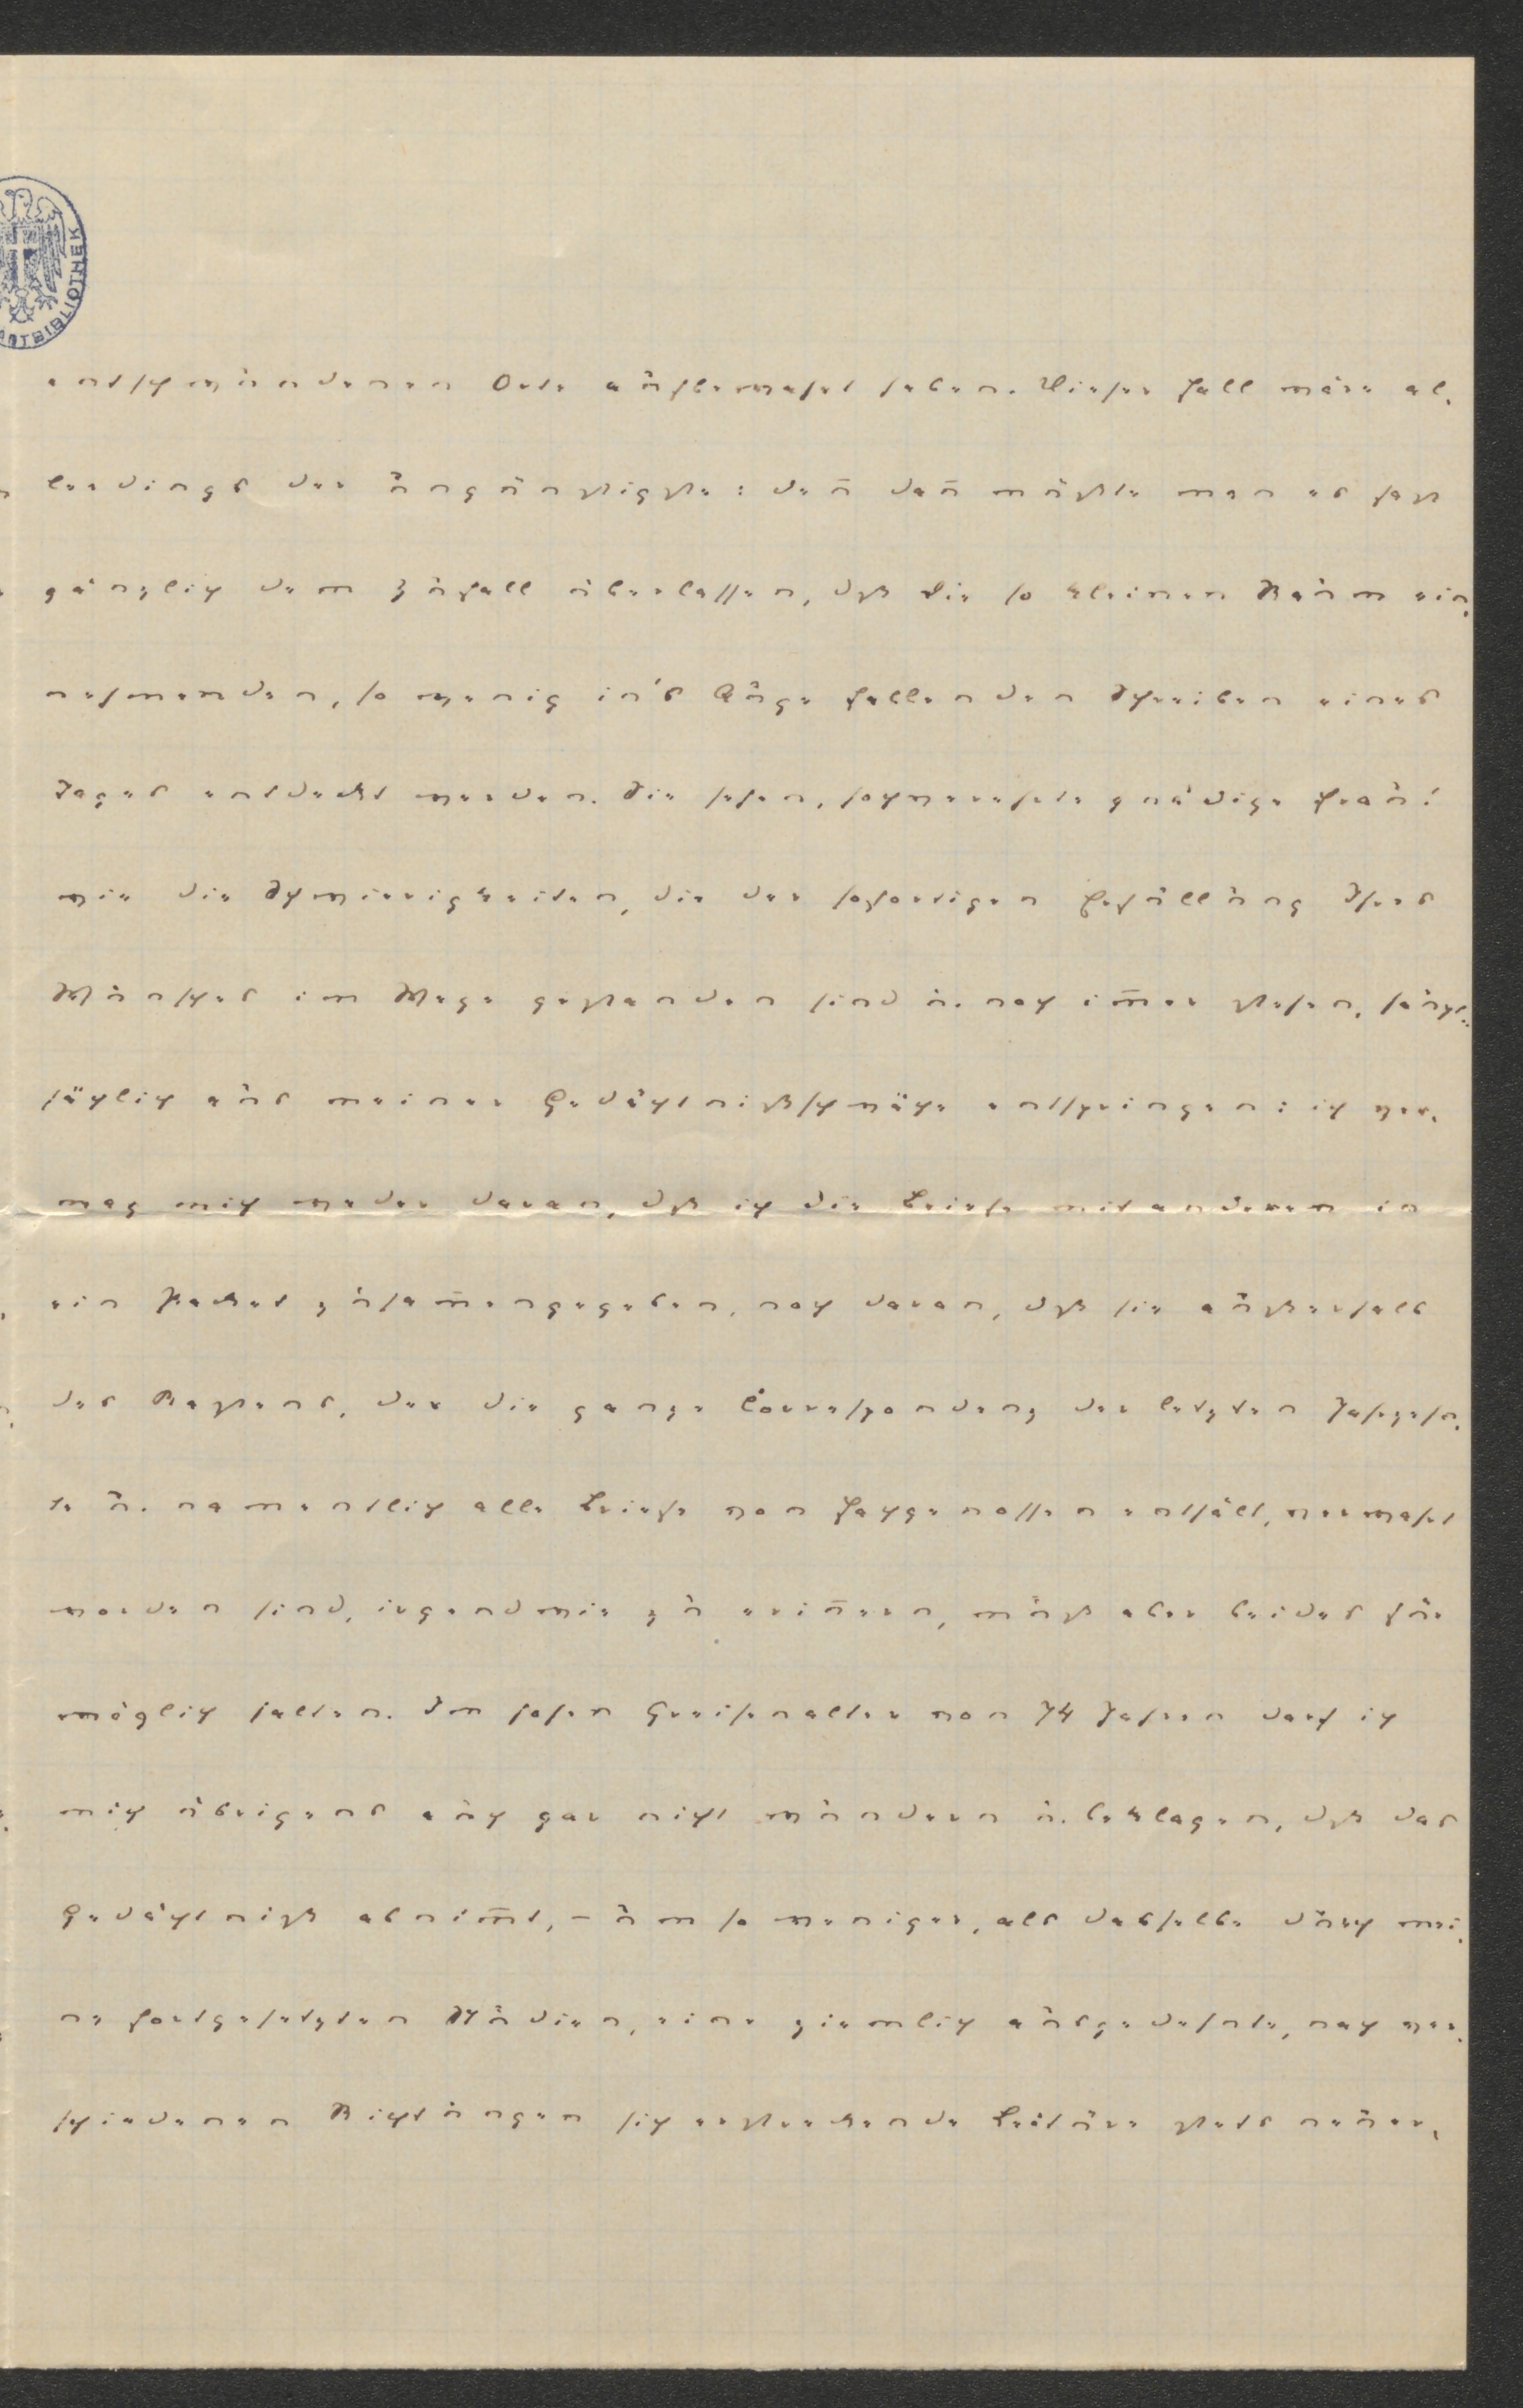 BIBLIOTHEK
entschwundenen Orte aufbewahrt haben. Dieser Fall wäre al-
lerdings der ungünstigste: den̄ dan̄ müßte man es fast
gänzlich dem Zufall überlassen, dß die so kleinen Raum ein-
nehmenden, so wenig in's Auge fallenden Schreiben eines
Tages entdeckt werden. Sie sehen, hochverehrte gnädige Frau!
wie die Schwierigkeiten, die der sofortigen Erfüllung Ihres
Wunsches im Wege gestanden sind u. noch im̄er stehen, haupt-
sächlich aus meiner Gedächtnißschwäche entspringen: ich ver-
mag mich weder daran, dß ich die Briefe mit anderen in
ein Packet zusam̄engegeben, noch daran, dß sie außerhalb
des Kastens, der die ganze Correspondenz der letzten Jahrzehn-
te u. namentlich alle Briefe von Fachgenossen enthält, verwahrt
worden sind, irgendwie zu erin̄ern, muß aber beides für
möglich halten. Im hohen Greisenalter von 74 Jahren darf ich
mich übrigens auch gar nicht wundern u. beklagen, dß das
Gedächtniß abnim̄t, – um so weniger, als dasselbe durch mei-
ne fortgesetzten Studien, eine ziemlich ausgedehnte, nach ver-
schiedenen Richtungen sich erstreckende Lectüre stets neuer-